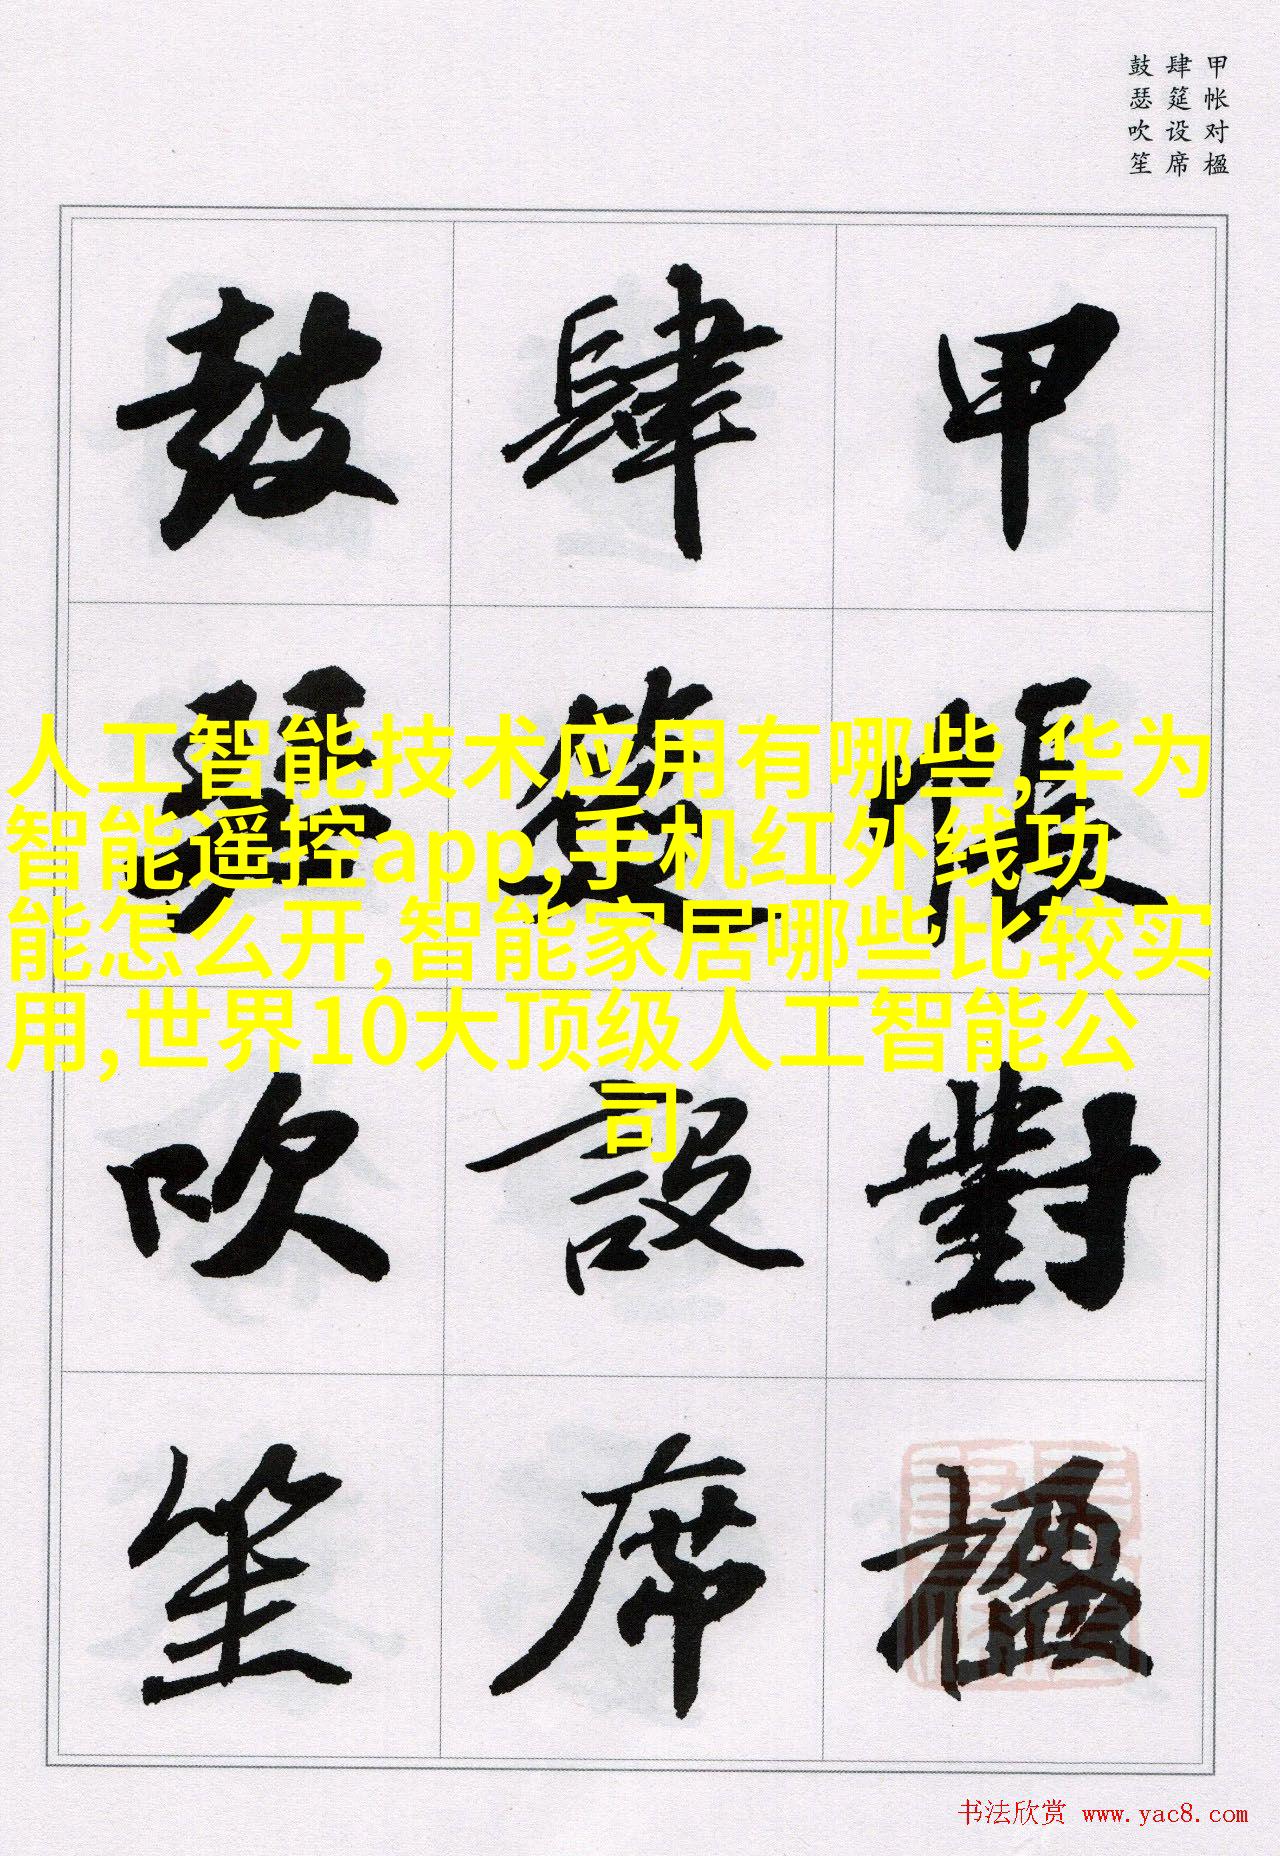 甲帐对楹
肆筵设席
鼓瑟吹笙
甲帳對楹
肆筵設席
鼓瑟吹笙
人工智能技术应用有哪些,华为
智能遥控app,手机红外线功
能怎么开,智能家居哪些比较实
用,世界10大顶级人工智能公
司
书法欣赏 www.yac8.com